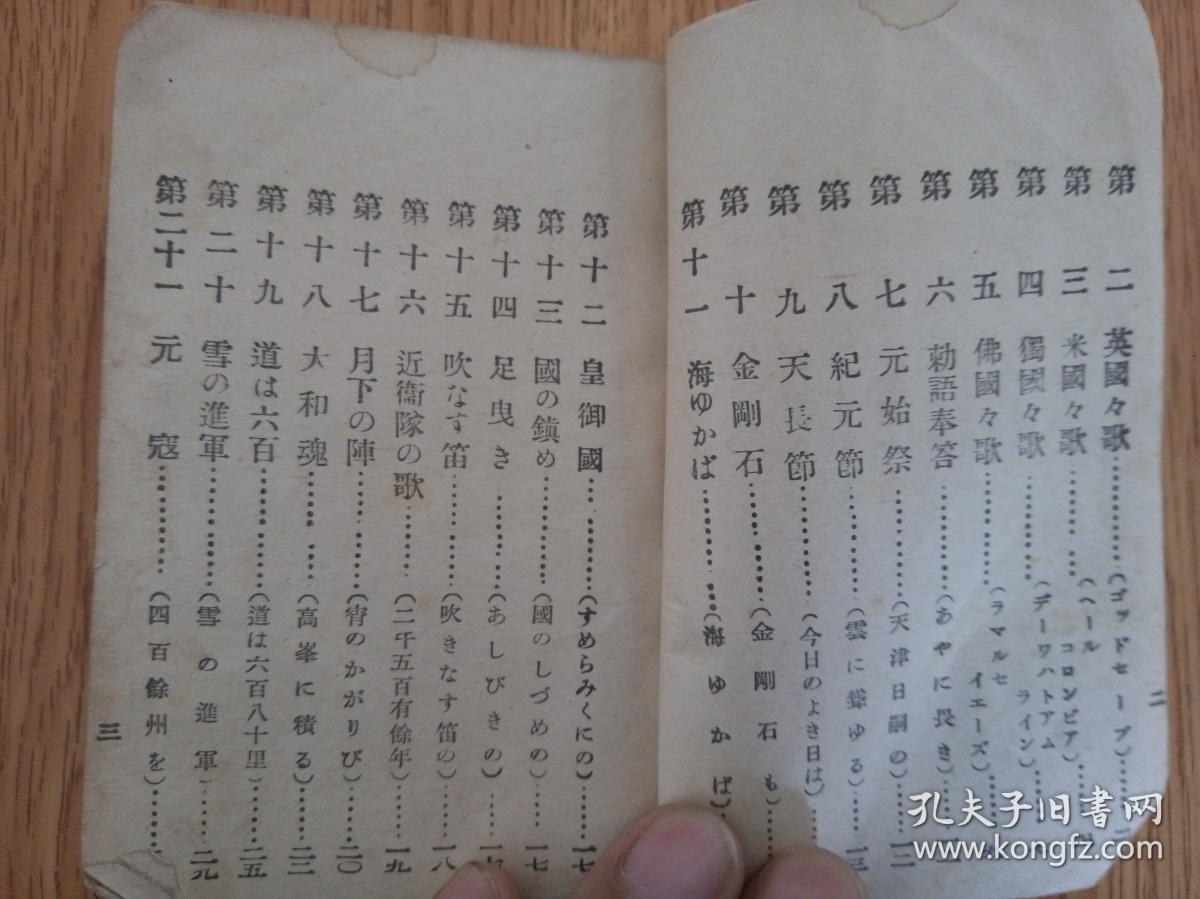 第二 英國々歌…………(ゴッドセーブ)……
第三 米國々歌…………(ヘール コロンビア)……
第四 獨國々歌…………(デーワハトアム ライン)……
第五 佛國々歌…………(ラマルセ イエーズ)……
第六 勅語奉答…………(あやに畏き)……
第七 元始祭…………(天津日嗣の)……一二
第八 紀元節…………(雲に聳ゆる)……一三
第九 天長節…………(今日のよき日は)……
第十 金剛石…………(金剛石も)……
第十一 海ゆかば…………(海ゆかば)
二
第十二 皇御國…………(すめらみくにの)……一七
第十三 國の鎭め…………(國のしづめの)……一七
第十四 足曳き…………(あしびきの)……
第十五 吹なす笛…………(吹きなす笛の)……一八
第十六 近衞隊の歌…………(二千五百有餘年)……一九
第十七 月下の陣…………(宵のかがりび)……二〇
第十八 大和魂…………(高峯に積る)……二三
第十九 道は六百…………(道は六百八十里)……二五
第二十 雪の進軍…………(雪の進軍)……二九
第二十一 元寇…………(四百餘州を)……
三
孔夫子旧书网
www.kongfz.com